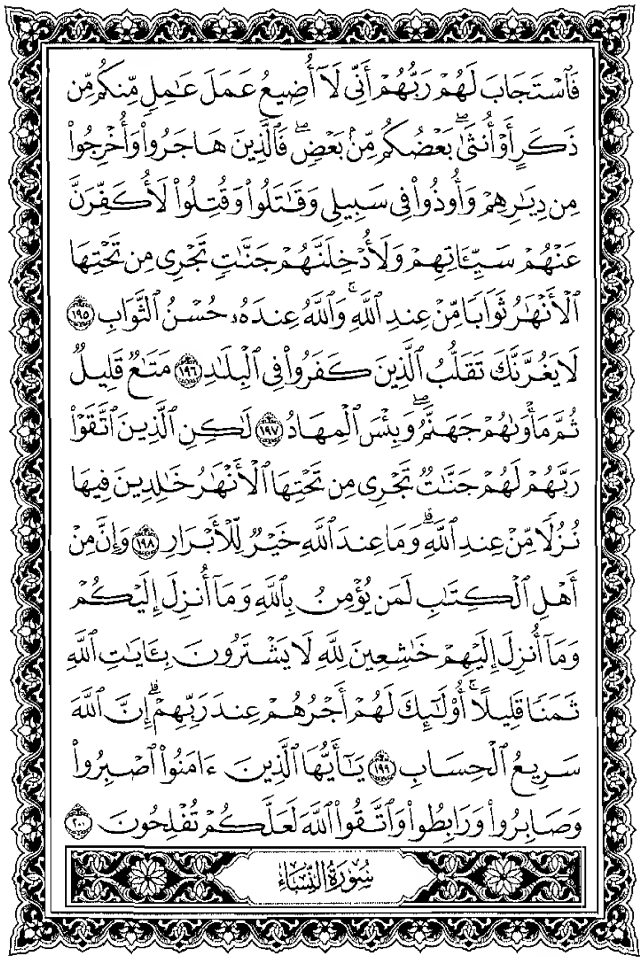 فَٱسْتَجَابَ لَهُمْ رَبُّهُمْ أَنِّى لَآ أُضِيعُ عَمَلَ عَٰمِلٍ مِّنكُم مِّن
ذَكَرٍ أَوْ أُنثَىٰۖ بَعْضُكُم مِّنۢ بَعْضٍۖ فَٱلَّذِينَ هَاجَرُوا۟ وَأُخْرِجُوا۟
مِن دِيَٰرِهِمْ وَأُوذُوا۟ فِى سَبِيلِى وَقَٰتَلُوا۟ وَقُتِلُوا۟ لَأُكَفِّرَنَّ
عَنْهُمْ سَيِّـَٔاتِهِمْ وَلَأُدْخِلَنَّهُمْ جَنَّٰتٍ تَجْرِى مِن تَحْتِهَا
ٱلْأَنْهَٰرُ ثَوَابًا مِّنْ عِندِ ٱللَّهِۚ وَٱللَّهُ عِندَهُۥ حُسْنُ ٱلثَّوَابِ ١٩٥
لَا يَغُرَّنَّكَ تَقَلُّبُ ٱلَّذِينَ كَفَرُوا۟ فِى ٱلْبِلَٰدِ ١٩٦ مَتَٰعٌ قَلِيلٌ
ثُمَّ مَأْوَىٰهُمْ جَهَنَّمُۖ وَبِئْسَ ٱلْمِهَادُ ١٩٧ لَٰكِنِ ٱلَّذِينَ ٱتَّقَوْا۟
رَبَّهُمْ لَهُمْ جَنَّٰتٌ تَجْرِى مِن تَحْتِهَا ٱلْأَنْهَٰرُ خَٰلِدِينَ فِيهَا
نُزُلًا مِّنْ عِندِ ٱللَّهِۗ وَمَا عِندَ ٱللَّهِ خَيْرٌ لِّلْأَبْرَارِ ١٩٨ وَإِنَّ مِنْ
أَهْلِ ٱلْكِتَٰبِ لَمَن يُؤْمِنُ بِٱللَّهِ وَمَآ أُنزِلَ إِلَيْكُمْ
وَمَآ أُنزِلَ إِلَيْهِمْ خَٰشِعِينَ لِلَّهِ لَا يَشْتَرُونَ بِـَٔايَٰتِ ٱللَّهِ
ثَمَنًا قَلِيلًاۚ أُو۟لَٰٓئِكَ لَهُمْ أَجْرُهُمْ عِندَ رَبِّهِمْۗ إِنَّ ٱللَّهَ
سَرِيعُ ٱلْحِسَابِ ١٩٩ يَٰٓأَيُّهَا ٱلَّذِينَ ءَامَنُوا۟ ٱصْبِرُوا۟
وَصَابِرُوا۟ وَرَابِطُوا۟ وَٱتَّقُوا۟ ٱللَّهَ لَعَلَّكُمْ تُفْلِحُونَ ٢٠٠
سُورَةُ النِّسَاءِ